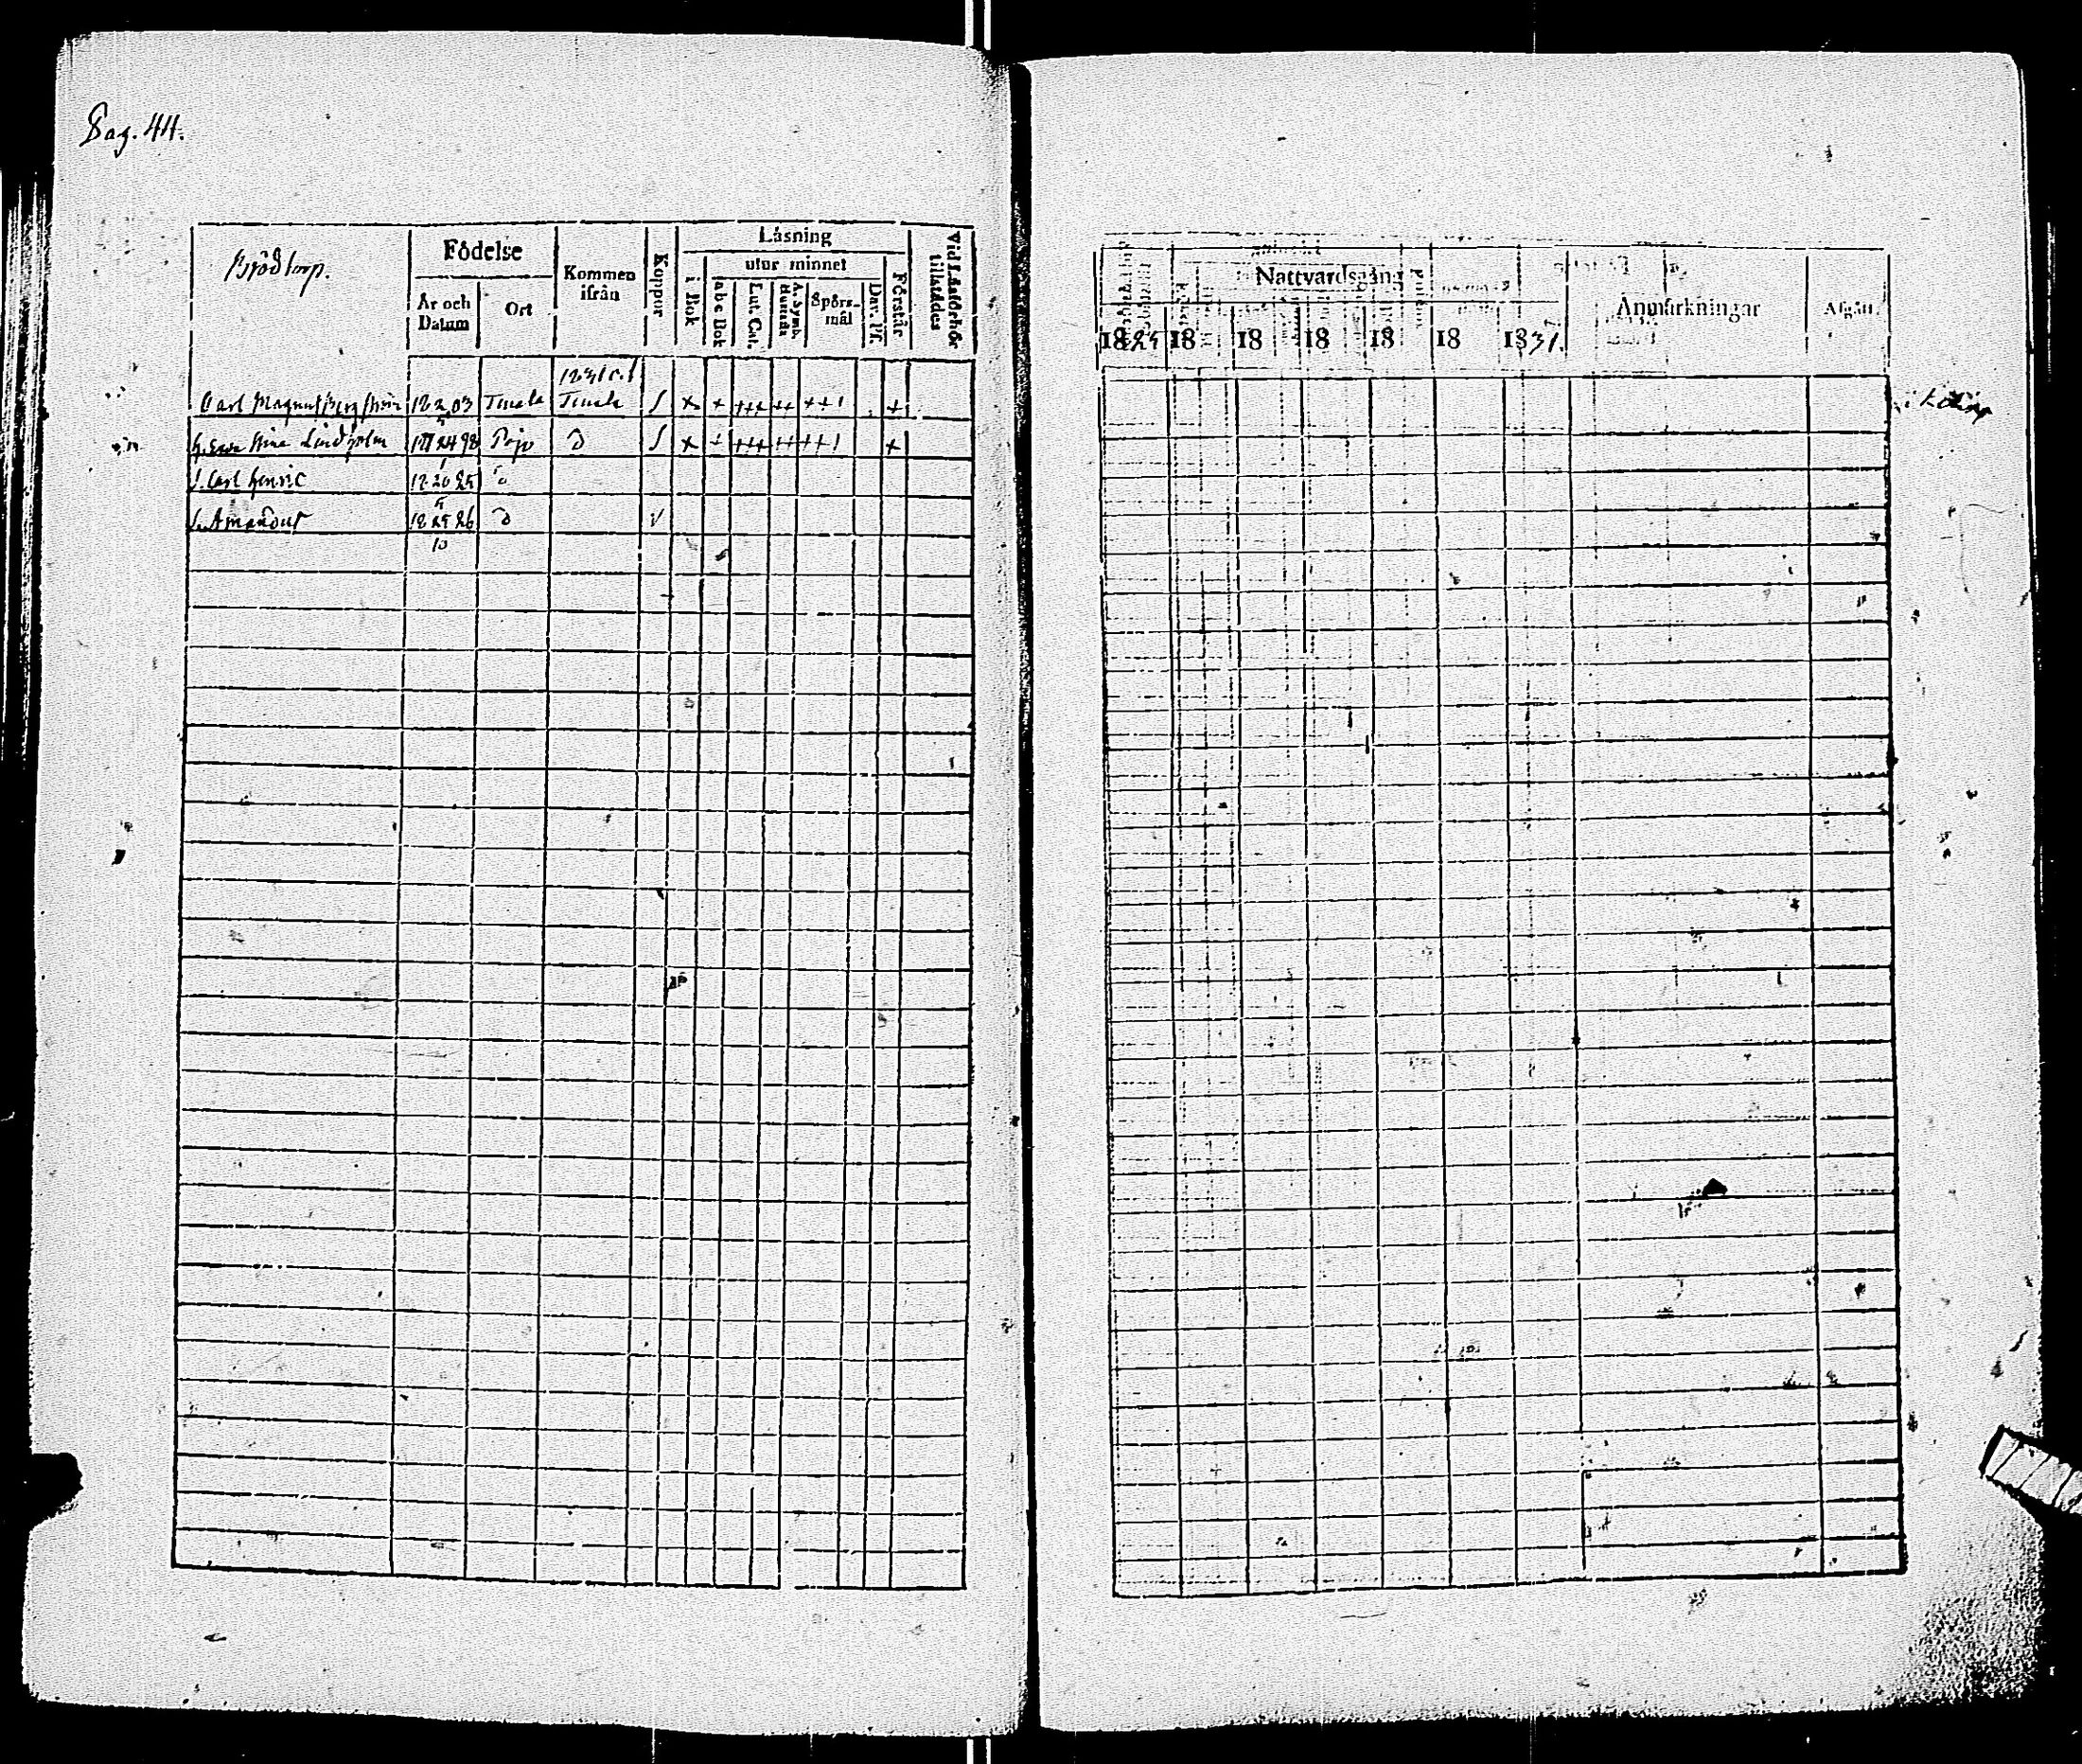 Pag. 44.
Brödtorp.
Födelse
År och Datum
Ort
Kommen ifrån
Koppor
Läsning
utur minnet
i Bok
abc Bok
Lut. Cat.
A. Symb. Hustafl.
Spörs-mål
Dav. Ps.
Förstår
Vid Läsförhör tillstädes
Carl Magnus Bergström 18 2/5 03 Tenala Tenala
h. Eva Stina Lindholm 17 24/1 98 Pojo D
S. Carl Henric 18 20/5 25 D
S. Amandus 18 25/10 26 D
Nattvardsgång
Anmärkningar
Afgått.
18 18 18 18 18 18 1831.